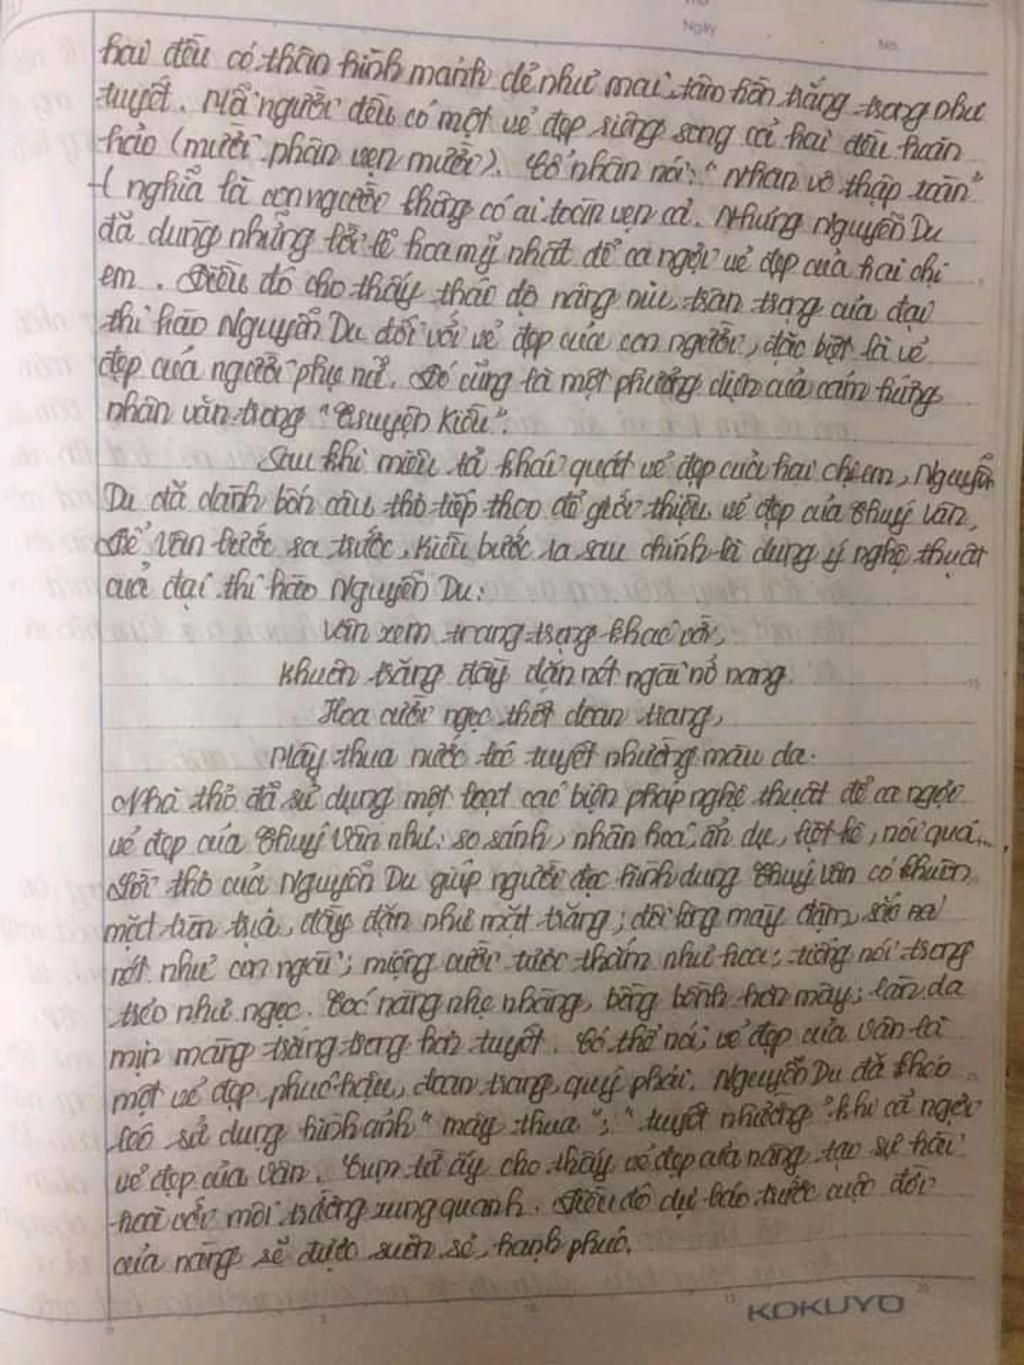 Ngày
No.
hai đều có thân hình mảnh dẻ như mai, tâm hồn trắng trong như
tuyết. Mỗi người đều có một vẻ đẹp riêng song cả hai đều hoàn
hảo (mười phân vẹn mười). Cổ nhân nói: "Nhân vô thập toàn"
( nghĩa là con người không có ai toàn vẹn cả. Nhưng Nguyễn Du
đã dùng những lời lẽ hoa mỹ nhất để ca ngợi vẻ đẹp của hai chị
em. Điều đó cho thấy thái độ nâng niu, trân trọng của đại
thi hào Nguyễn Du đối với vẻ đẹp của con người, đặc biệt là vẻ
đẹp của người phụ nữ. Đó cũng là một phương diện của cảm hứng
nhân văn trong "Truyện Kiều".
Sau khi miêu tả khái quát vẻ đẹp của hai chị em, Nguyễn
Du đã dành bốn câu thơ tiếp theo để giới thiệu vẻ đẹp của Thuý Vân.
Để Vân bước ra trước, Kiều bước ra sau chính là dụng ý nghệ thuật
của đại thi hào Nguyễn Du:
Vân xem trang trọng khác vời,
Khuôn trăng đầy đặn nét ngài nở nang.
Hoa cười ngọc thốt đoan trang,
Mây thua nước tóc tuyết nhường màu da.
Nhà thơ đã sử dụng một loạt các biện pháp nghệ thuật để ca ngợi
vẻ đẹp của Thuý Vân như: so sánh, nhân hoá, ẩn dụ, liệt kê, nói quá...
Lời thơ của Nguyễn Du giúp người đọc hình dung Thuý Vân có khuôn
mặt tròn trịa, đầy đặn như mặt trăng; đôi lông mày đậm, sắc nét
nét như con ngài; miệng cười tươi thắm như hoa; tiếng nói trong
trẻo như ngọc. Tóc nàng nhẹ nhàng, bồng bềnh hơn mây; làn da
mịn màng trắng trong hơn tuyết. Có thể nói, vẻ đẹp của Vân là
một vẻ đẹp phúc hậu, đoan trang, quý phái. Nguyễn Du đã khéo
léo sử dụng hình ảnh "mây thua"; "tuyết nhường" khi ca ngợi
vẻ đẹp của Vân. Cụm từ ấy cho thấy vẻ đẹp của nàng tạo sự hài
hoà với môi trường xung quanh. Điều đó dự báo trước cuộc đời
của nàng sẽ được suôn sẻ, hạnh phúc.
KOKUYO